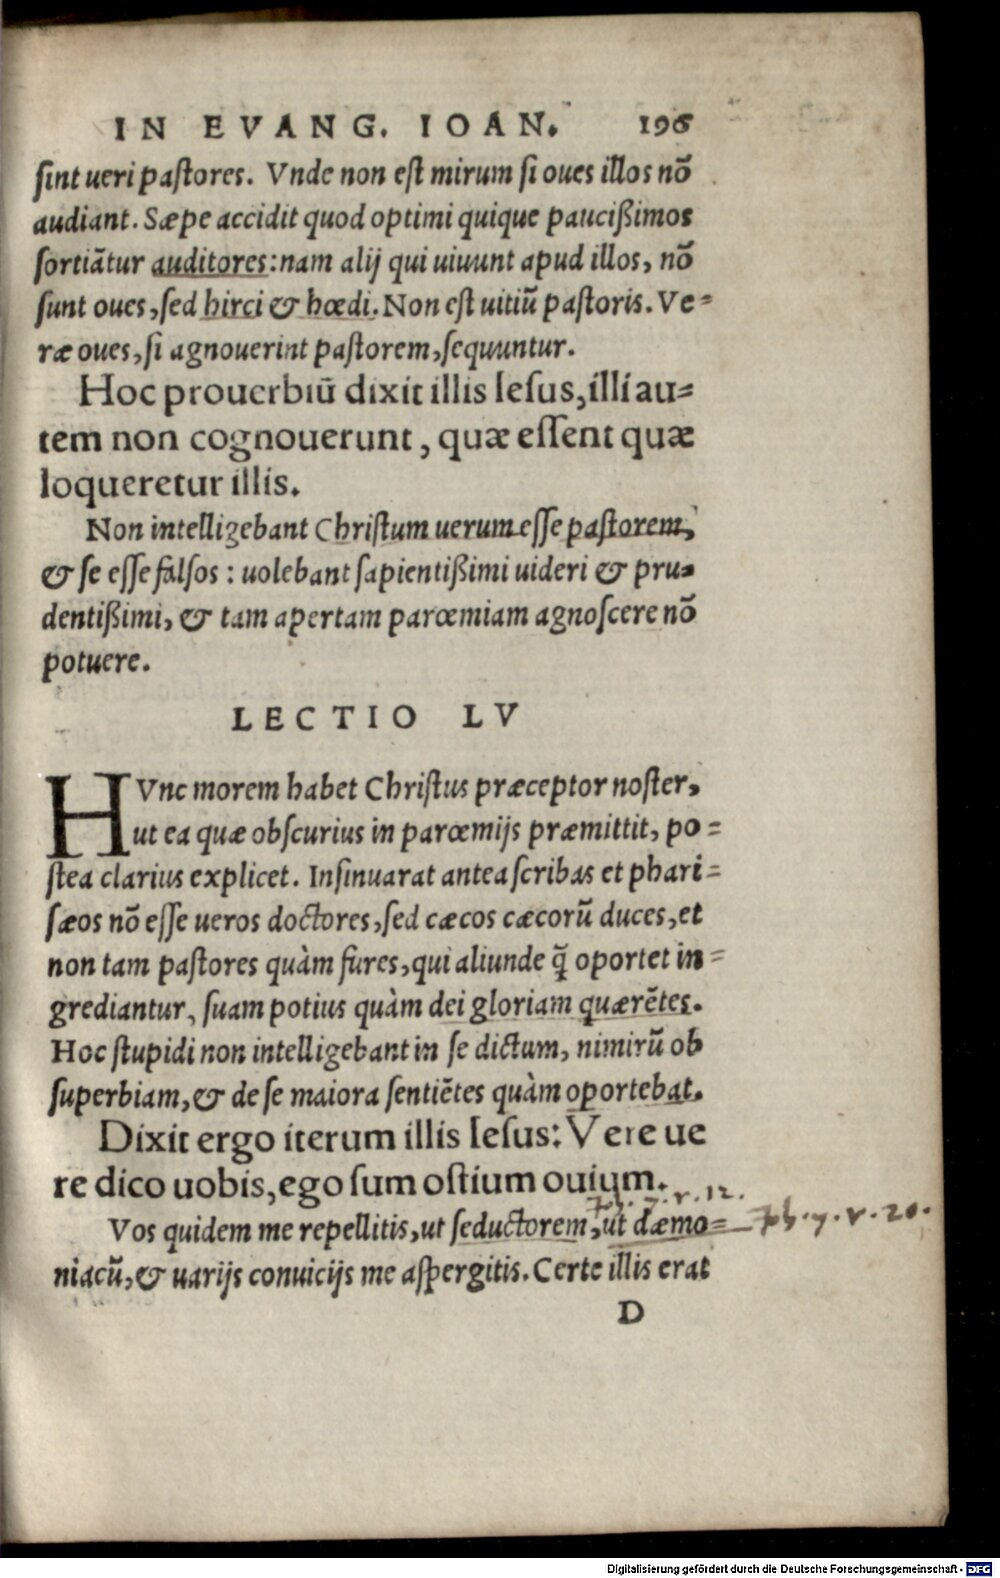 IN EVANG. IOAN. 196
ſint ueri paſtores. Vnde non eſt mirum ſi oues illos nō
audiant. Sæpe accidit quod optimi quique paucißimos
ſortiātur auditores: nam alij qui uiuunt apud illos, nō
ſunt oues, ſed hirci & hœdi. Non eſt uitiū paſtoris. Ve-
ræ oues, ſi agnouerint paſtorem, ſequuntur.
Hoc prouerbiū dixit illis Ieſus, illi au-
tem non cognouerunt, quæ eſſent quæ
loqueretur illis.
Non intelligebant Chriſtum uerum eſſe paſtorem,
& ſe eſſe falſos: uolebant ſapientißimi uideri & pru-
dentißimi, & tam apertam parœmiam agnoſcere nō
potuere.
LECTIO LV
HVnc morem habet Chriſtus præceptor noſter,
ut ea quæ obſcurius in parœmijs præmittit, po-
ſtea clarius explicet. Inſinuarat antea ſcribas et phari-
ſæos nō eſſe ueros doctores, ſed cæcos cæcorū duces, et
non tam paſtores quàm fures, qui aliunde q̄ oportet in-
grediantur, ſuam potius quàm dei gloriam quærētes.
Hoc ſtupidi non intelligebant in ſe dictum, nimirū ob
ſuperbiam, & de ſe maiora ſentiētes quàm oportebat.
Dixit ergo iterum illis Ieſus: Vere ue
re dico uobis, ego ſum oſtium ouium.
7. v. 12.
Vos quidem me repellitis, ut ſeductorem, ut dæmo- 7. v. 20.
niacū, & uarijs conuicijs me aſpergitis. Certe illis erat
D
Digitalisierung gefördert durch die Deutsche Forschungsgemeinschaft - DFG